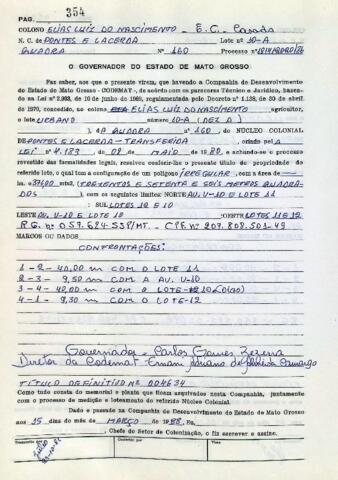 PAG. 354
COLONO ELIAS LUÍZ DO NASCIMENTO - E.C. Casado
N. C. de PONTES E LACERDA Lote nº 10-A
QUADRA Nº 160 Processo nº
O GOVERNADOR DO ESTADO DE MATO GROSSO
Faz saber, aos que o presente virem, que havendo a Companhia de Desenvolvimento
do Estado de Mato Grosso - CODEMAT-, de acordo com os pareceres Técnico e Jurídico, basea-
do na Lei nº 2.903, de 10 de junho de 1969, regulamentada pelo Decreto nº 1.138, de 30 de abril
de 1970, concedido ao colono ELIAS LUÍZ DO NASCIMENTO agricultor,
o lote URBANO número 10-A (DEZ A)
), da QUADRA nº 160, DO NÚCLEO COLONIAL
DE PONTES E LACERDA - TRANSFERIDA criado pela
LEI nº 4.133 de 08 de MAIO de 1980, e achando-se o processo
revestido das formalidades legais, resolveu conferir-lhe o presente título de propriedade do
referido lote, o qual tem a configuração de um polígono IRREGULAR, com a área de
376,00 mts2, (TREZENTOS E SETENTA E SEIS METROS QUADRA-
DOS) com os seguintes limites: NORTE AV. U-10 E LOTE 11
SUL LOTES 12 E 10
LESTE AV. U-10 E LOTE 10 OESTE LOTES 11 E 12
R.G. nº 059.624-SSP/MT. - CPF. nº 207.808.501-49
MARCOS OU DADOS
CONFRONTAÇÕES:
1 - 2 - 40,00 m COM O LOTE 11
2 - 3 - 9,50 m COM A AV. U-10
3 - 4 - 40,00 m COM O LOTE 10
4 - 1 - 9,30 m COM O LOTE-12
Governador - Carlos Gomes Bezerra
Diretor da Codemat Ernani Adriano de Almeida Camargo
TÍTULO DEFINITIVO Nº 004634
Como tudo consta do memorial e planta que ficam arquivados nesta Companhia, juntamente
com o processo de medição e loteamento do referido Núcleo Colonial.
Dado e passado na Companhia de Desenvolvimento do Estado de Mato Grosso
aos 15 dias do mês de MARÇO de 1988. Eu,
, Chefe do Setor de Colonização, o fiz escrever e assino.
Conferido
Visto